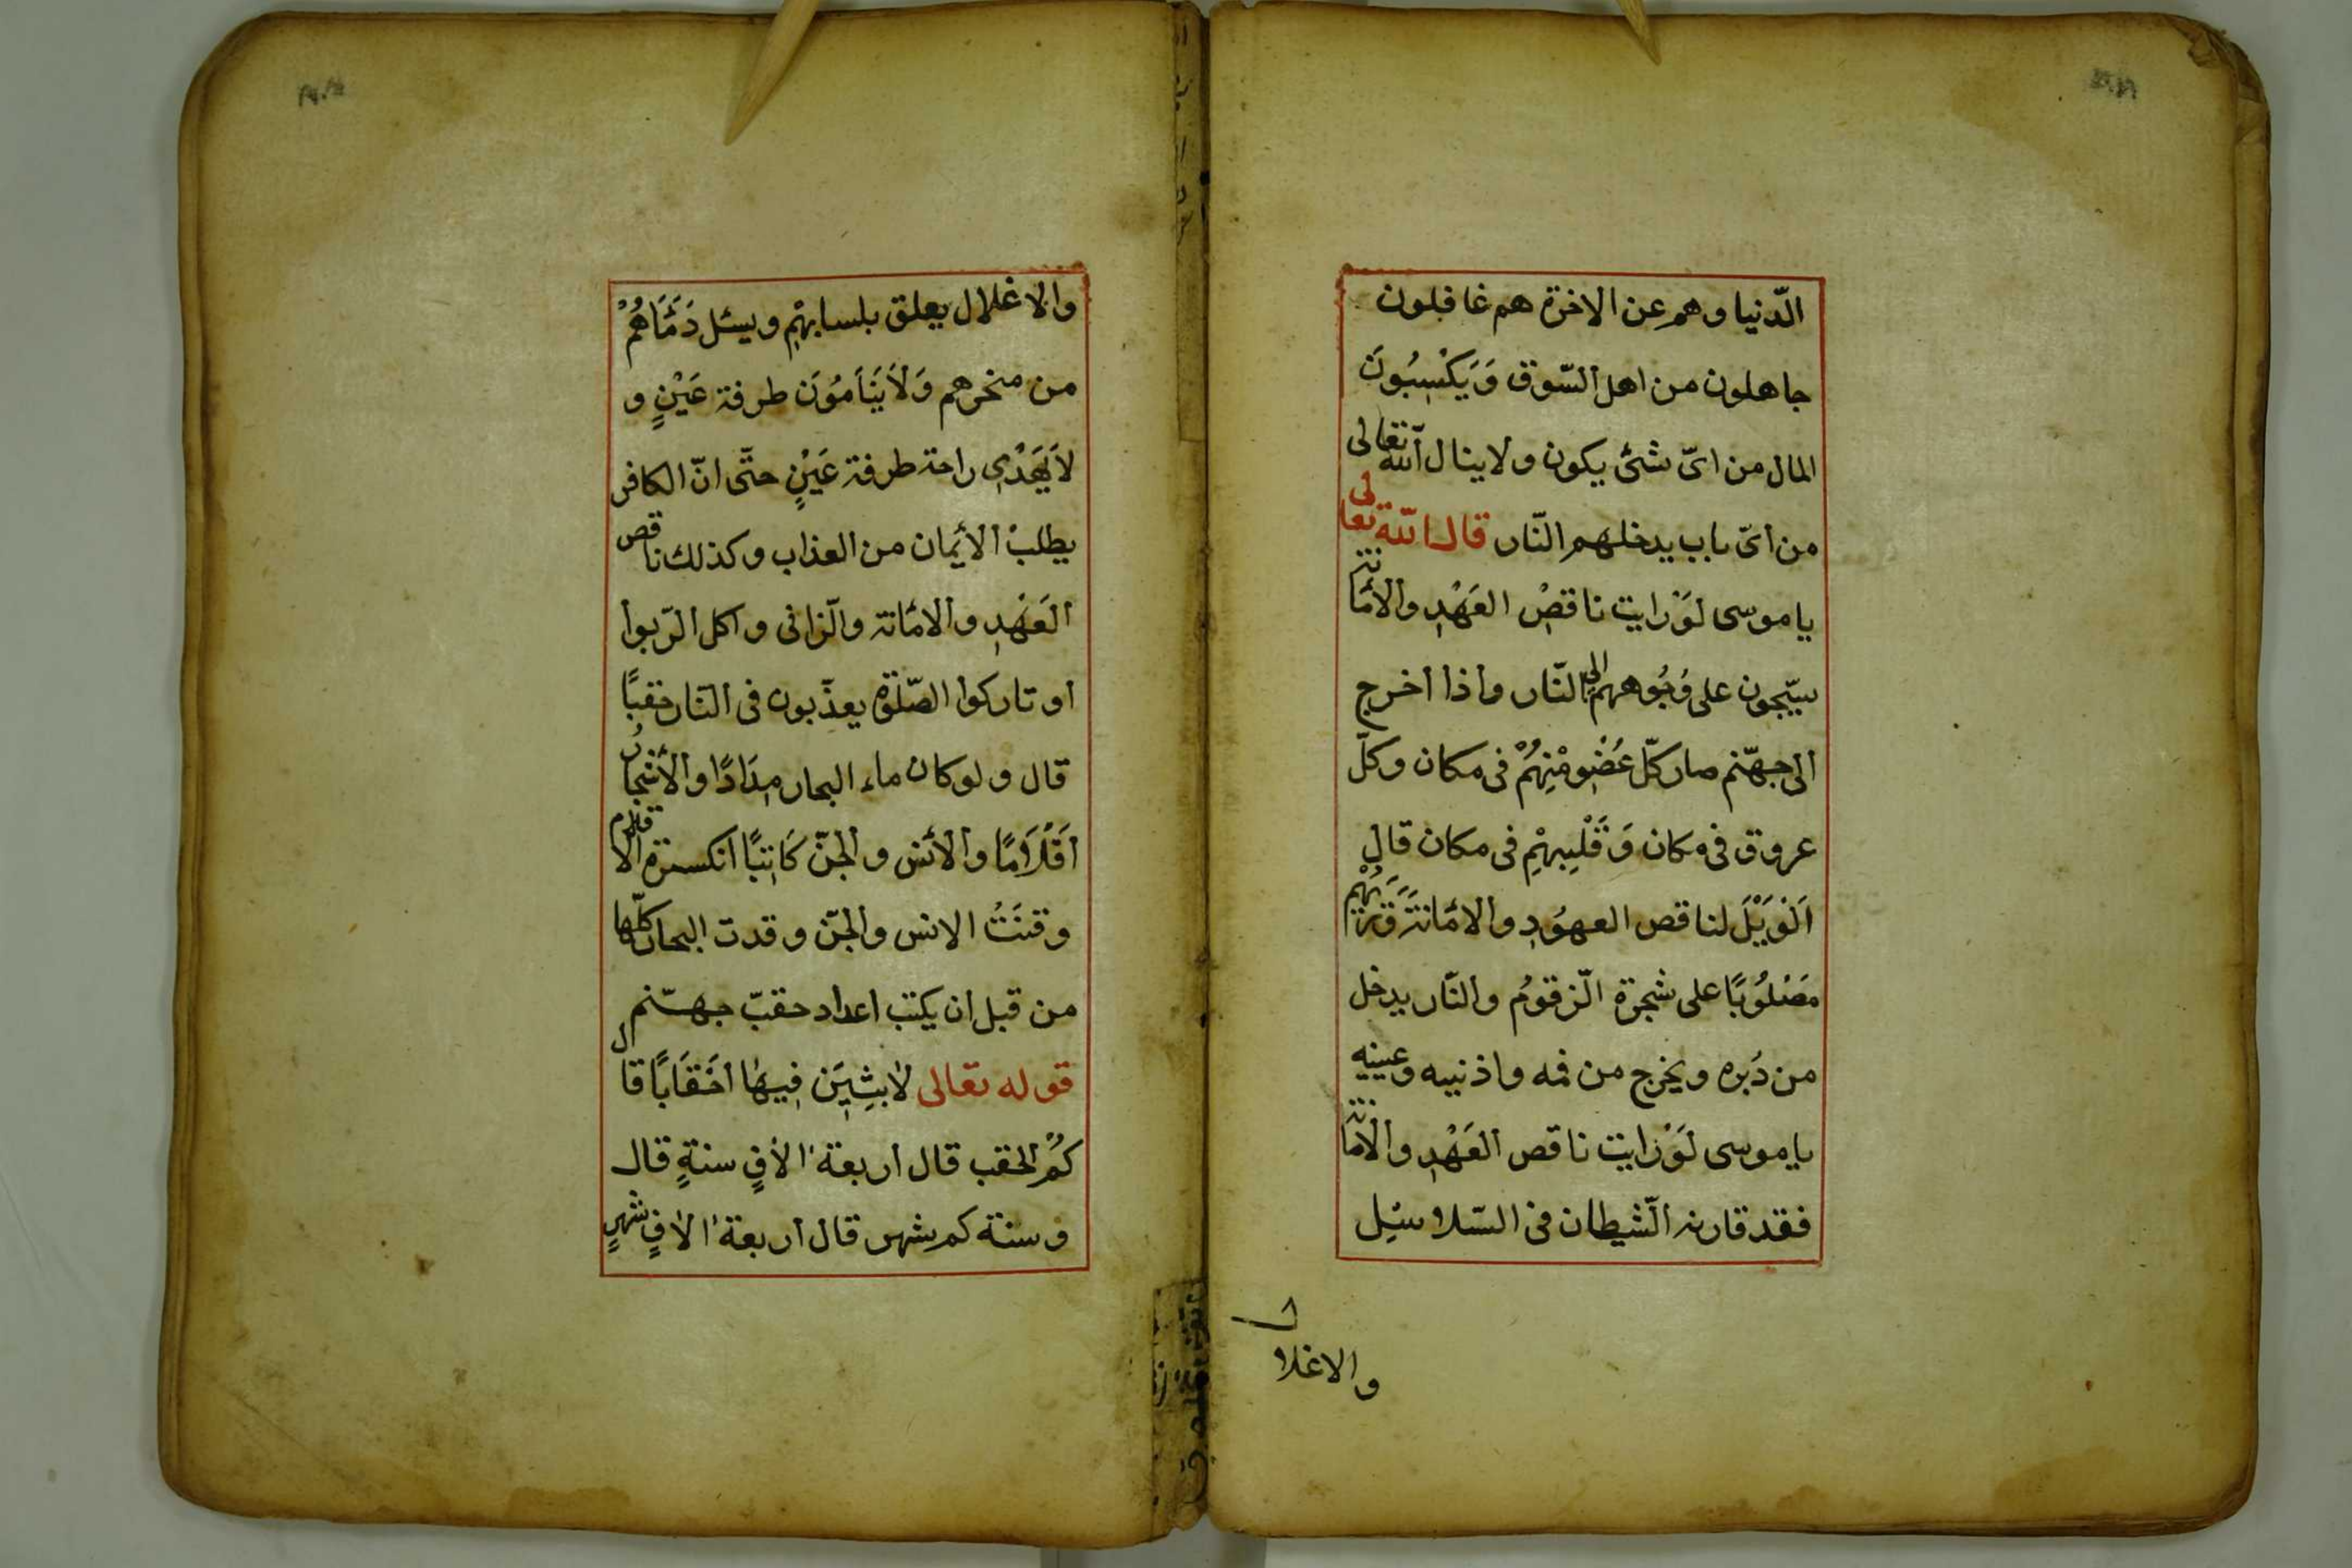 الدّنيا وهم عن الاخرة هم غافلون
جاهلون من اهل السّوق وَيَكْسِبُونَ
المال من اىّ شئ يكون ولاينال الله تعالى
من اىّ باب يدخلهم النّار قال الله تعالى
ياموسى لَوْرايت ناقصْ العَهْدِ والامَانة
على وُجُوههم الى النّار واذا اخرج
الى جهنّم صار كلّ عُضْوِمْنِهُمْ فى مكان وكلّ
عروق فى مكان وَقَلْبِهِمْ فى مكان قال
اَلْوَيْلَ لناقص العهُودِ والامَانَةَ
مَصْلُوُبًا على شجرة الزّقومُ والنّار يدخل
من دَبره ويخرج من فمه واذنيه وعينيه
ياموسى لَوْرايت ناقص العَهْدِ والامَانة
فقد قارنه الشّيطان فى السّلاسِل
والاغلا
والاغلال يعلق ويسئل دَمَاهُمْ
من منخرهم وَلَايَنَامُوَن طرفة عَيْنٍ و
راحة طرفة عَيْنٍ حتّى انّ الكافر
يطلبْ الأيمان من العذاب وكذلك ناقص
العَهْدِ والامانة والزّانى واكل الرّبوا
اوتاركوا الصّلوة يعذّبون فى النّار حقبًا
قال ولوكان ماء البحار مِدَادًا والأشجار
اَقْلَامًا والأنس والجنّ كَاتِبًا انكسرة الاقلام
وقنَتُ الانس والجنّ وقدت البحار كلّها
من قبل ان يكتب اعداد حقبّ جهنّم
قوله تعالى لابِثِيَن فِيهَا اَحْقَابًا قال
كمُ الحقب قال اربعة الافٍ سنةٍ قال
وسنة كم شهر قال اربعة الافٍ شهرٍ